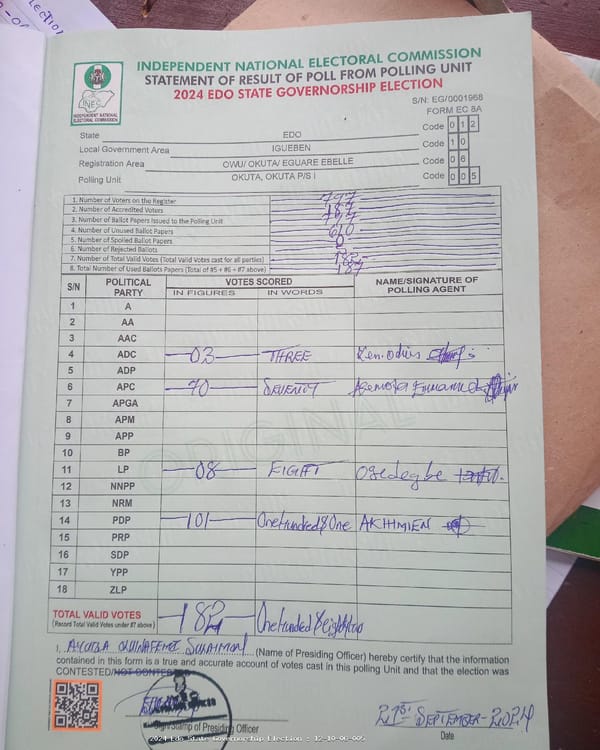 INDEPENDENT NATIONAL ELECTORAL COMMISSION
STATEMENT OF RESULT OF POLL FROM POLLING UNIT
2024 EDO STATE GOVERNORSHIP ELECTION
INEC
INDEPENDENT NATIONAL ELECTORAL COMMISSION
S/N: EG/0001968
FORM EC 8A
State EDO Code 0 1 2
Local Government Area IGUEBEN Code 1 0
Registration Area OWU/ OKUTA/ EGUARE EBELLE Code 0 6
Polling Unit OKUTA, OKUTA P/S I Code 0 0 5
1. Number of Voters on the Register 797
2. Number of Accredited Voters 187
3. Number of Ballot Papers Issued to the Polling Unit 797
4. Number of Unused Ballot Papers 610
5. Number of Spoiled Ballot Papers 0
6. Number of Rejected Ballots
7. Number of Total Valid Votes (Total Valid Votes cast for all parties)
8. Total Number of Used Ballots Papers (Total of #5 + #6 + #7 above) 187
S/N POLITICAL PARTY VOTES SCORED NAME/SIGNATURE OF POLLING AGENT
IN FIGURES IN WORDS
1 A
2 AA
3 AAC
4 ADC 03 THREE
5 ADP
6 APC 70 SEVENTY
7 APGA
8 APM
9 APP
10 BP
11 LP 08 EIGHT Osedegbe
12 NNPP
13 NRM
14 PDP 101 One hundred & One AKHMIEN
15 PRP
16 SDP
17 YPP
18 ZLP
ORIGINAL
TOTAL VALID VOTES 182 One hundred & eighty two
(Record Total Valid Votes under #7 above)
I, (Name of Presiding Officer) hereby certify that the information
contained in this form is a true and accurate account of votes cast in this polling Unit and that the election was
CONTESTED/NOT CONTESTED
21st SEPTEMBER-2024
Sign/Stamp of Presiding Officer
Date
2024 Edo State Governorship Election : 12-10-06-005